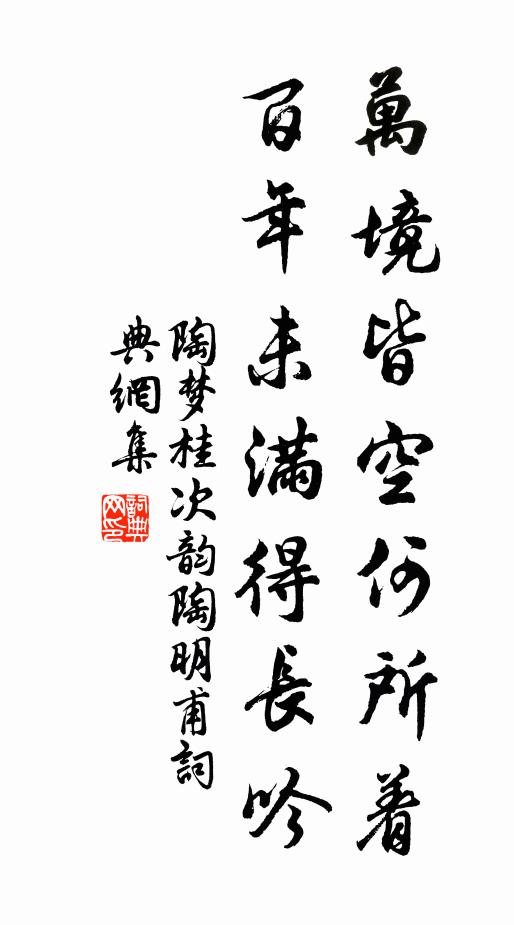 萬境皆空何所着
百年未滿得長吟
陶梦桂次韵陶明甫詞
典網集
詞典
网印